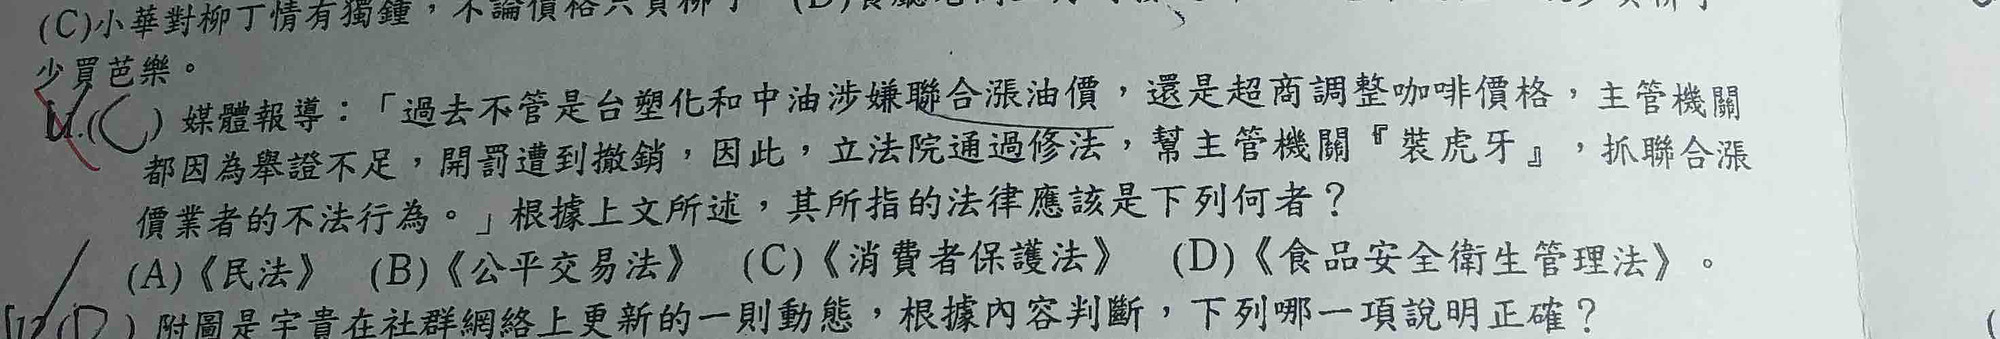 (C)小華對柳丁情有獨鍾,不論價格只買柳丁
少買芭樂。
(C) 媒體報導:「過去不管是台塑化和中油涉嫌聯合漲油價,還是超商調整咖啡價格,主管機關
都因為舉證不足,開罰遭到撤銷,因此,立法院通過修法,幫主管機關『裝虎牙』,抓聯合漲
價業者的不法行為。」根據上文所述,其所指的法律應該是下列何者?
(A)《民法》 (B)《公平交易法》 (C)《消費者保護法》 (D)《食品安全衛生管理法》。
12.(D) 附圖是宇貴在社群網絡上更新的一則動態,根據內容判斷,下列哪一項說明正確?